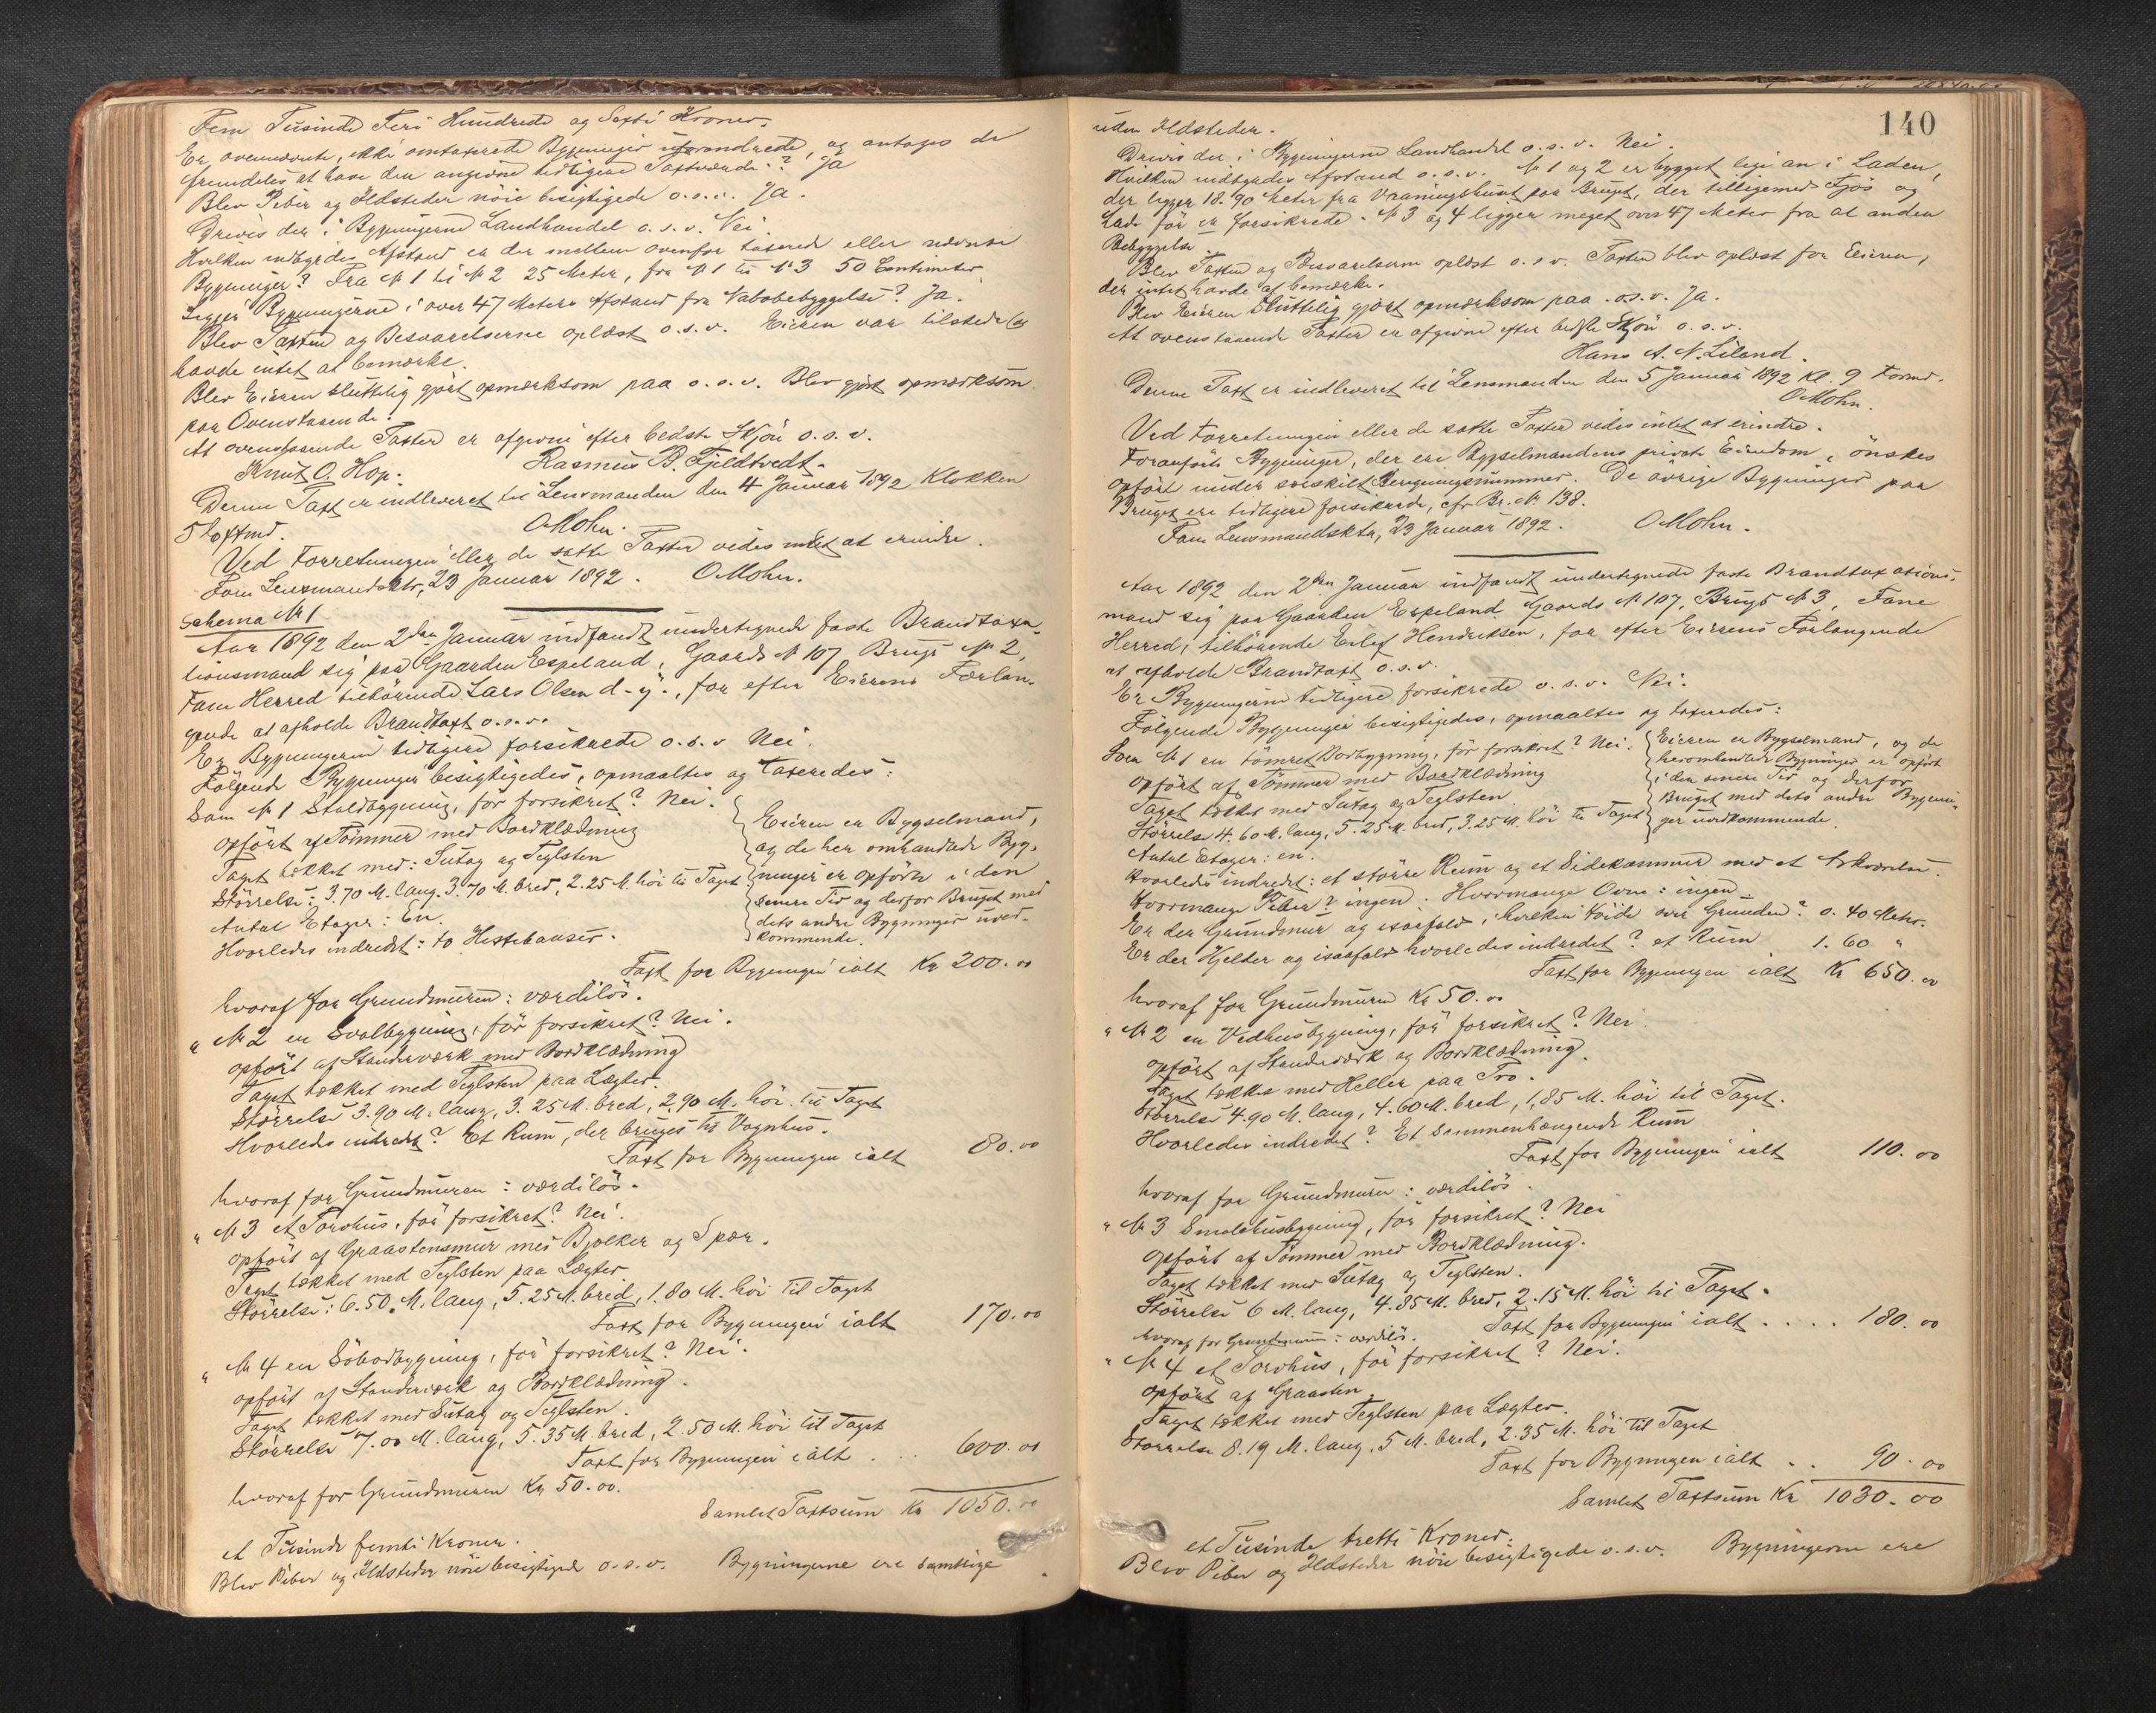 Fem Tusinde Fire Hundrede og Sexti Kroner.
Er ovennævnte, ikke omtaxerede Bygninger uforandrede, og antages de
fremdeles at have den angivne tidligere Taxtværdi? Ja
Blev Piber og Ildsteder nöie besigtigede o.s.v. Ja.
Drives der i Bygningerne Landhandel o.s.v. Nei.
Hvilken indbyrdes Afstand er der mellem ovenfor taxerede eller nævnte
Bygninger? Fra № 1 til № 2 25 Meter, fra № 1 til № 3 50 Centimeter
Ligger Bygningerne i over 47 Meters Afstand fra Nabobebyggelse? Ja.
Blev Taxten og Besvarelserne oplæst o.s.v. Eieren var tilstede (og
havde intet at bemærke.
Blev Eieren sluttelig gjort opmærksom paa o.s.v. Blev gjort opmærksom
paa Ovenstaaende.
At ovenstaaende Taxter er afgivne efter bedste Skjön o.s.v.
Knut O. Hop. Rasmus B. Fjeldtvedt.
Denne Taxt er indleveret til Lensmanden den 4 Januar 1892 Klokken
5 Eftmd. O Mohn.
Ved Forretningen eller de satte Taxter vides intet at erindre.
Fane Lensmandsktr, 23 Januar 1892. O Mohn.
Schema № 1
Aar 1892 den 2den Januar indfandt undertegnede faste Brandtaxa-
tionsmand sig paa Gaarden Espeland, Gaards № 107 Brugs № 2,
Fane Herred tilhörende Lars Olsen d. y., for efter Eierens Forlan-
gende at afholde Brandtaxt o.s.v.
Er Bygningerne tidligere forsikrede o.s.v Nei.
Fölgende Bygninger besigtigedes, opmaaltes og taxeredes:
Som № 1 Staldbygning, för forsikret? Nei.
opfört af Tömmer med Bordklædning
Taget tækket med: Sutag og Teglsten
Störrelse: 3.70 M. lang. 3.70 M. bred, 2.25 M. höi til Taget
Antal Etager: En.
Hvorledes indredet: to Hestebaaser.
Eieren er Bygselmand,
og de her omhandlede Byg-
ninger er opförte i den
senere Tid og derfor Bruget med
dets andre Bygninger uved-
kommende.
Taxt for Bygningen ialt Kr 200.00
hvoraf for Grundmuren: værdilös.
" № 2 en Svalbygning, för forsikret? Nei.
opfört af Standerværk med Bordklædning
Taget tækket med Teglsten paa Lægter.
Störrelse 3.90 M. lang, 3.25 M. bred, 2.90 M. höi til Taget
Hvorledes indredet? Et Rum, der bruges til Vognhus.
Taxt for Bygningen ialt 80.00
hvoraf for Grundmuren: værdilös.
" № 3 et Torvhus, för forsikret? Nei.
opfört af Graastensmur med Bjelker og Spær.
Taget tækket med Teglsten paa Lægter
Störrelse: 6.50 M. lang, 5.25 M. bred, 1.80 M. höi til Taget
Taxt for Bygningen ialt 170.00
" № 4 en Söbodbygning, för forsikret? Nei.
opfört af Standerværk og Bordklædning.
Taget tækket med Sutag og Teglsten.
Störrelse 7.00 M. lang, 5.35 M. bred, 2.50 M. höi til Taget
Taxt for Bygningen ialt . . . 600.00
hvoraf for Grundmuren Kr 50.00.
Samlet Taxtsum Kr 1050.00
et Tusinde femti Kroner.
Blev Piber og Ildsteder nöie besigtigede o.s.v. Bygningerne ere samtlige
140
uden Ildsteder.
Drives der i Bygningerne Landhandel o.s.v. Nei.
Hvilken indbyrdes Afstand o.s.v. № 1 og 2 er bygget lige an i Laden,
der ligger 18.90 Meter fra Vraningshuset paa Bruget, der tilligemed Fjös og
Lade för er forsikrede. № 3 og 4 ligger meget over 47 Meter fra al anden
Bebyggelse.
Blev Taxten og Besvarelserne oplæst o.s.v. Taxten blev oplæst for Eieren,
der intet havde at bemærke.
Blev Eieren sluttelig gjort opmærksom paa o.s.v. Ja.
At ovenstaaende Taxter er afgivne efter bedste Skjön o.s.v.
Hans A. N. Liland.
Denne Taxt er indleveret til Lensmanden den 5 Januar 1892 Kl. 9 Formd.
O Mohn.
Ved Forretningen eller de satte Taxter vides intet at erindre.
Foranförte Bygninger, der ere Bygselmandens private Eiendom, önskes
opfört under særskilt Beregningsnummer. De övrige Bygninger paa
Bruget ere tidligere forsikrede, cfr Br. № 138.
Fane Lensmandsktr, 23 Januar 1892. O Mohn.
Aar 1892 den 2den Januar indfandt undertegnede faste Brandtaxations-
mand sig paa Gaarden Espeland Gaards № 107, Brugs № 3, Fane
Herred, tilhörende Erlef Hendriksen, for efter Eierens Forlangende
at afholde Brandtaxt o.s.v.
Er Bygningerne tidligere forsikrede o.s.v. Nei.
Fölgende Bygninger besigtigedes, opmaaltes og taxeredes:
Som № 1 en tömret Bodbygning, för forsikret? Nei.
opfört af Tömmer med Bordklædning
Taget tækket med Sutag og Teglsten.
Störrelse 4.60 M. lang, 5.25 M. bred, 3.25 M. höi til Taget
Antal Etager: en.
Eieren er Bygselmand, og de
heromhandlede Bygninger er opfört
i den senere Tid og derfor
Bruget med dets andre Bygnin-
ger uvedkommende.
Hvorledes indredet: et större Rum og et Sidekammer med et Arkværelse.
Hvormange Piber? ingen. Hvormange Ovne: ingen.
Er der Grundmur og isaafald i hvilken Höide over Grunden? 0.40 Meter.
Er der Kjelder og isaafald hvorledes indredet? et Rum 1.60 "
Taxt for Bygningen ialt Kr 650.00
hvoraf for Grundmuren Kr 50.00
" № 2 en Vedhusbygning, för forsikret? Nei
opfört af Standerværk og Bordklædning.
Taget tækket med Heller paa Tro.
Störrelse 4.90 M. lang, 4.60 M. bred, 1.85 M. höi til Taget.
Hvorledes indredet? Et sammenhængende Rum
Taxt for Bygningen ialt 110.00
hvoraf for Grundmuren: værdilös.
" № 3 Smalehusbygning, för forsikret? Nei
opfört af Tömmer med Bordklædning.
Taget tækket med Sutag og Teglsten.
Störrelse 6 M. lang, 4.85 M. bred, 2.15 M. höi til Taget.
Taxt for Bygningen ialt . . . . 180.00
hvoraf for Grundmuren: værdilös.
" № 4 et Torvhus, för forsikret? Nei.
opfört af Graasten.
Taget tækket med Teglsten paa Lægter.
Störrelse 8.19 M. lang, 5 M. bred, 2.35 M. höi til Taget
Taxt for Bygningen ialt . . 90.00
Samlet Taxtsum Kr 1030.00
et Tusinde tretti Kroner.
Blev Piber og Ildsteder nöie besigtigede o.s.v. Bygningerne ere